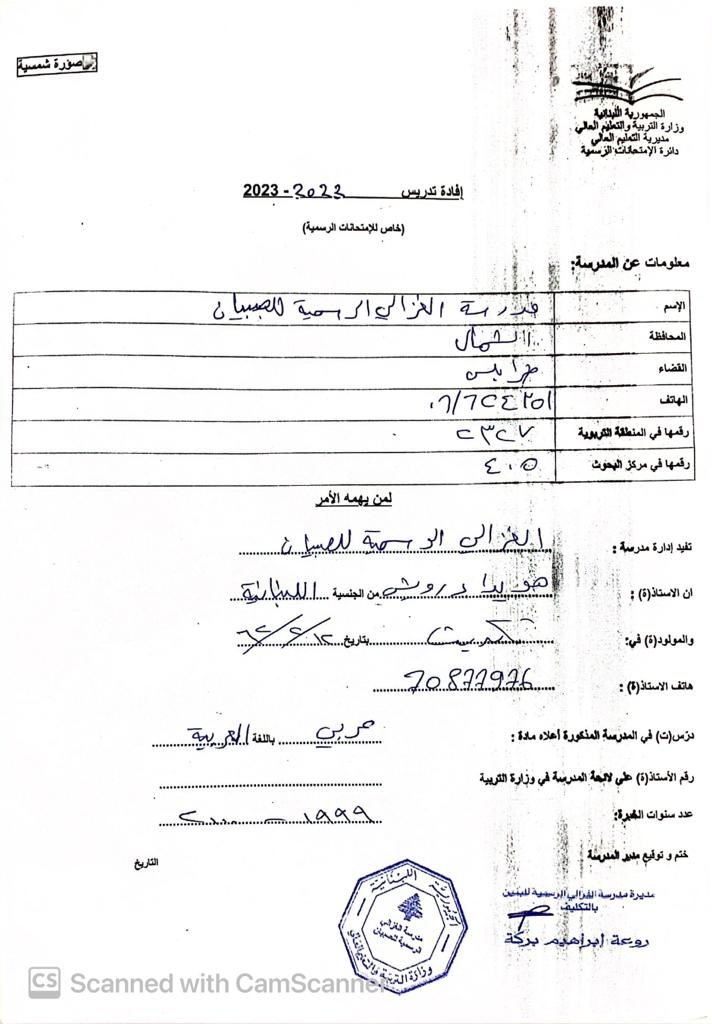 صورة شمسية
الجمهورية اللبنانية
وزارة التربية والتعليم العالي
مديرية التعليم العالي
دائرة الإمتحانات الرسمية
إفادة تدريس 2022 - 2023
(خاص للإمتحانات الرسمية)
معلومات عن المدرسة:
الإسم مدرسة الغزالي الرسمية للصبيان
المحافظة الشمال
القضاء طرابلس
الهاتف ٠٦/٦٢٤٢٥١
رقمها في المنطقة التربوية ٢٣٢٧
رقمها في مركز البحوث ٤٠٥
لمن يهمه الأمر
تفيد إدارة مدرسة : الغزالي الرسمية للصبيان
ان الاستاذ(ة) : هويدا درويش من الجنسية اللبنانية
والمولود(ة) في: تكريت بتاريخ
هاتف الاستاذ(ة) : 70877976
درّس(ت) في المدرسة المذكورة أعلاه مادة : عربي باللغة العربية
رقم الأستاذ(ة) على لائحة المدرسة في وزارة التربية
عدد سنوات الخبرة: ١٩٩٩ - ٢٠٠٠
ختم و توقيع مدير المدرسة
التاريخ
مديرة مدرسة الغزالي الرسمية للبنين
بالتكليف
روعة ابراهيم بركة
الجمهورية اللبنانية
مدرسة الغزالي
الرسمية للصبيان
وزارة التربية والتعليم العالي
CS Scanned with CamScanner